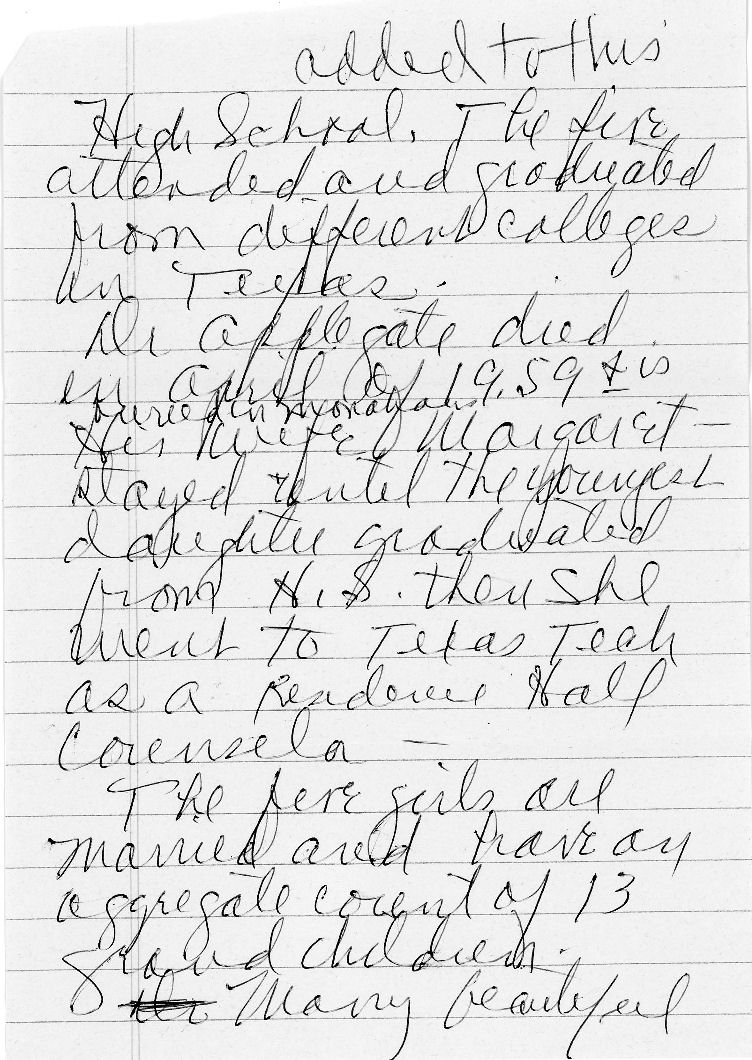 added to this
High School. The five
attended and graduated
from different colleges
in Texas.
Dr Applegate died
in April of 1959 & is
buried in Monahans
His wife, Margaret -
stayed until the youngest
daughter graduated
from H.S. then she
went to Texas Tech
as a Residence Hall
Counselor -
The five girls are
married and have an
aggregate count of 13
grand children.
Many beautiful